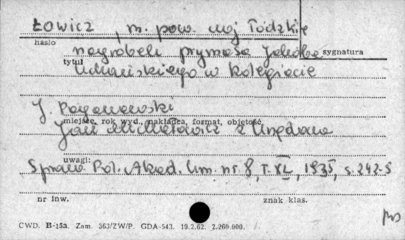 Łowicz, m. pow. woj łódzkie
hasło
nagrobek prymasa Jakóba
sygnatura
tytuł
Uchańskiego w kolegiacie
J Pagaczewski
miejsce, rok wyd., nakładca, format, objętość,
Jan Michałowicz z Urzędowa
uwagi:
Spraw. Pol. Akad. Um. nr 8, T. XL, 1935, s. 242-5
nr inw.
znak klas.
CWD. B-153. Zam. 363/ZW/P. GDA-543. 19.2.62. 2.260.000.